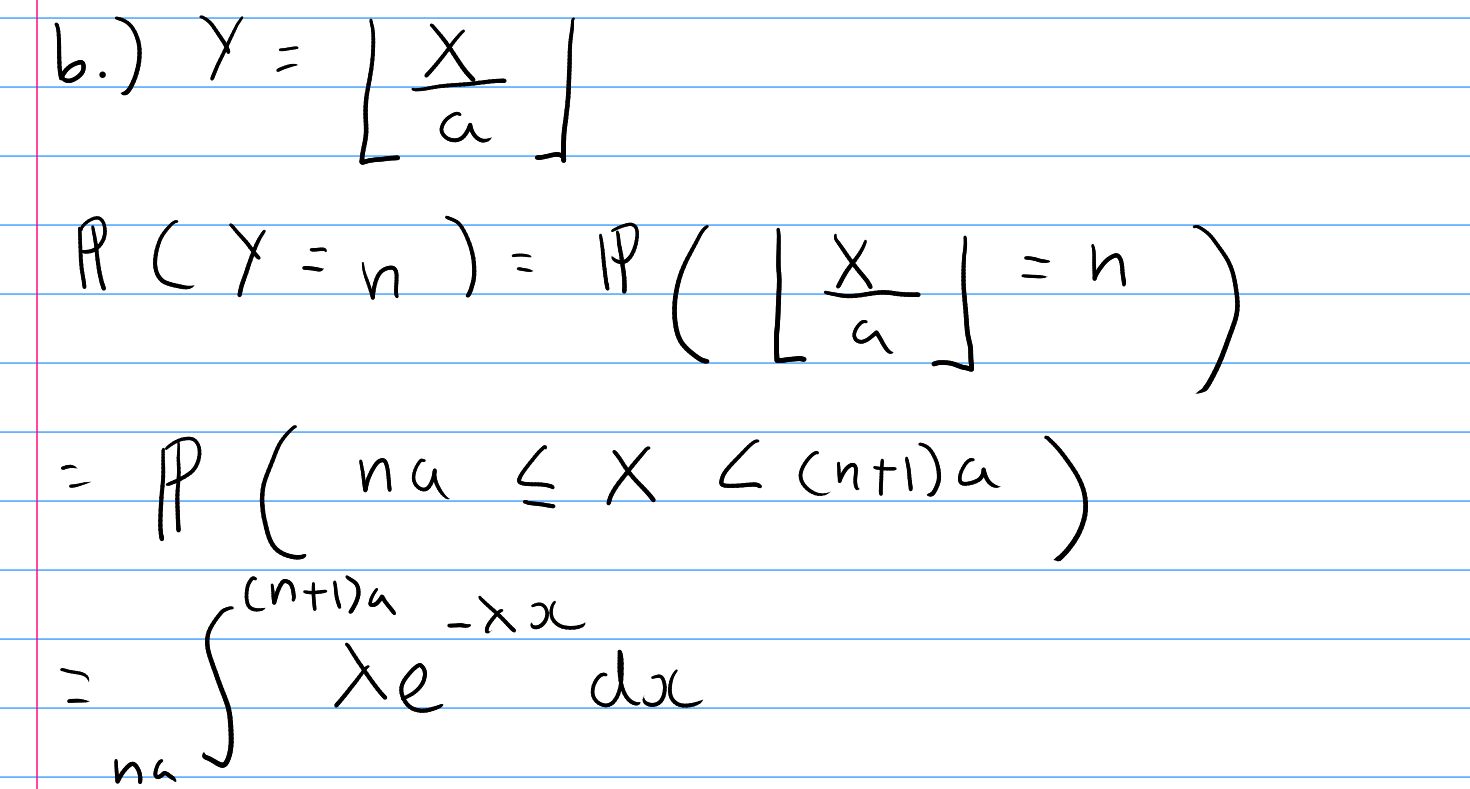 b.) Y = ⌊X/a⌋
ℙ(Y = n) = ℙ(⌊X/a⌋ = n)
= ℙ(na ≤ X < (n+1)a)
= ∫_{na}^{(n+1)a} λe^{-λx} dx